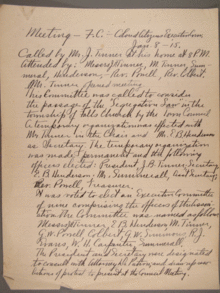 Meeting — F.C. — Colored Citizens
Jan 8 - 15.
Called by Mr. J. Tinner at his home at 8 P.M.
Attended by: Messrs Tinner, M. Tinner,
Henderson, Rev. Powell, Rev.
Mr. Tinner opened meeting
This Committee was called to consider
the passage of the Segregation Law in the
township of Falls Church by the Town Council
A temporary organization was effected with
Mr. Tinner in the Chair and Mr. E B Henderson
as Secretary. The temporary organization
was made permanent and the following
officers elected: President J. B. Tinner, Secretary
E. B. Henderson; Mr. Asst. Secretary,
Rev. Powell, Treasurer.
It was voted to elect an Executive Committee
of nine comprising the officers of the
the Committee was named as follows
Messrs Tinner, E B Henderson, M. Tinner,
G. W. Powell, G. W. Simmons, H. J.
W. H. Carpenter,
The President and Secretary were designated
to consult with attorney and draw up
of protest to present at the Council Meeting.